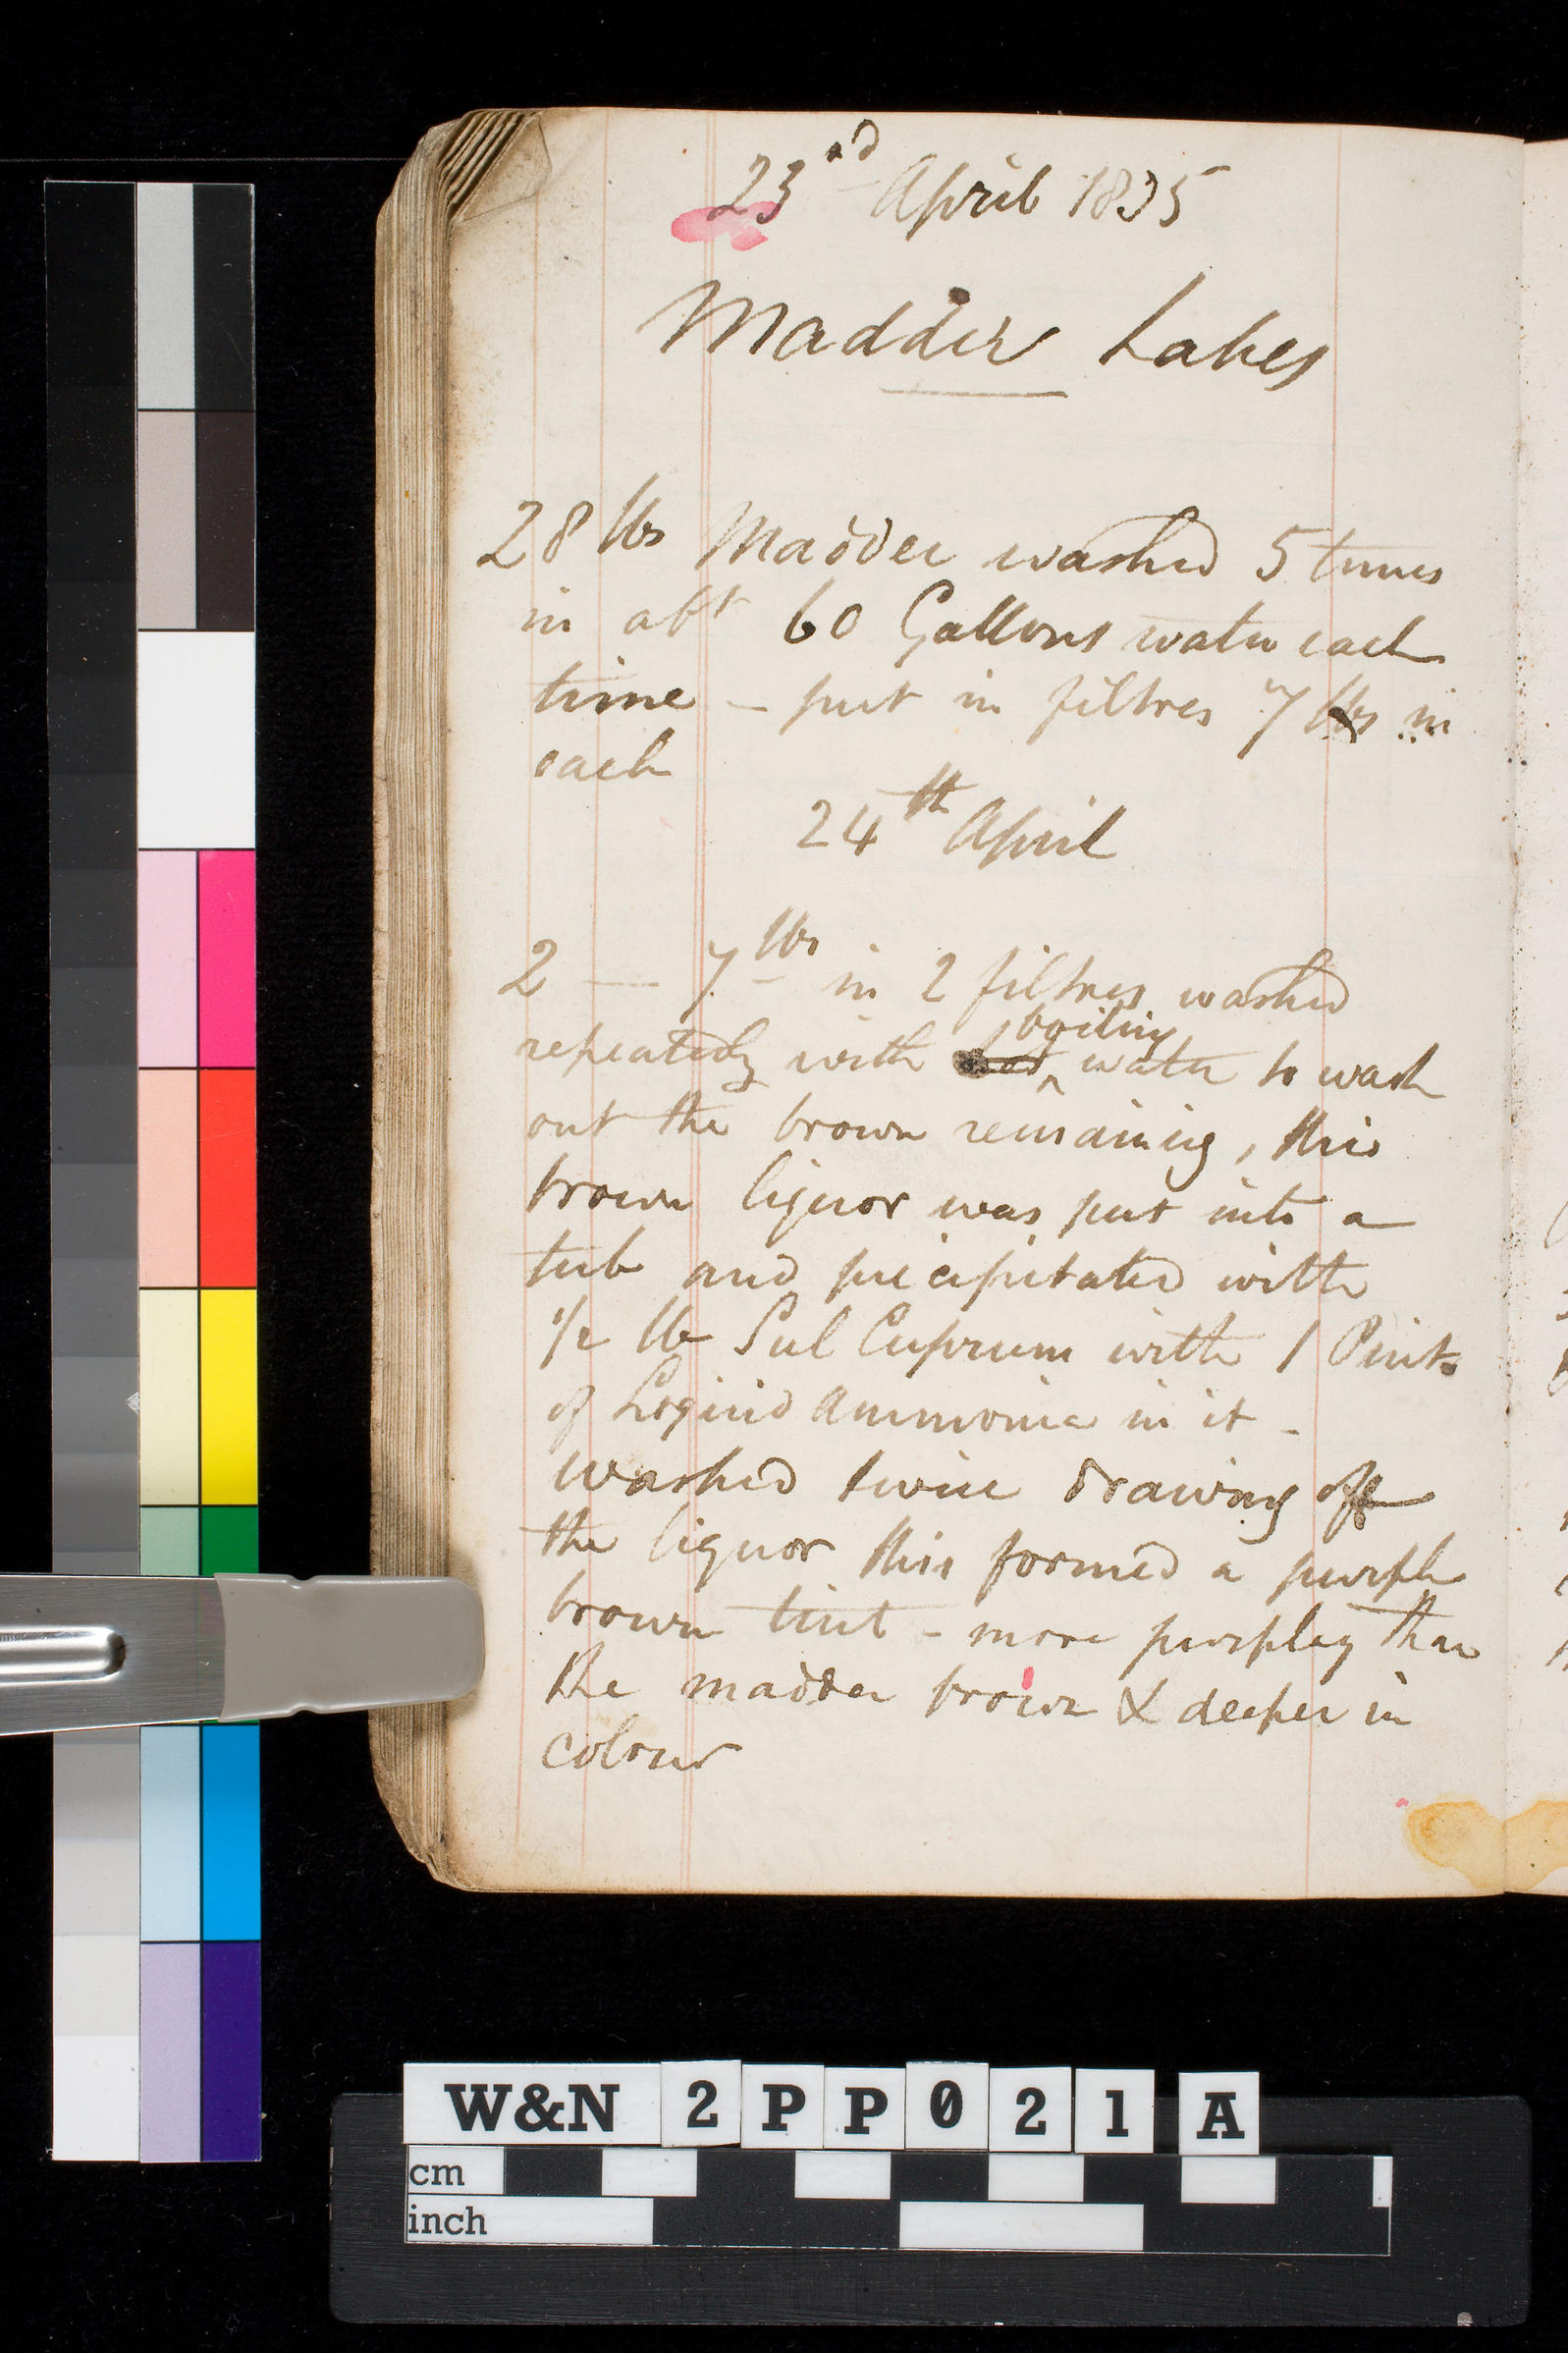 23rd April 1835
Madder Lakes
28 lbs Madder washed 5 times
in abt 60 Gallons water each
time – put in filtres 7 lbs in
each
24th April
2 — 7 lbs in 2 filtres washed
boiling
repeatedly with hot ^ water to wash
out the brown remaining, this
brown liquor was put into a
tub and precipitated with
1/2 lb Sul Cuprum with 1 Pint
of Loquid Ammonia in it –
washed twice drawing off
the liquor this formed a purple
brown tint – more purpley than
the madder brown & deeper in
colour
W&N 2PP021A
cm
inch